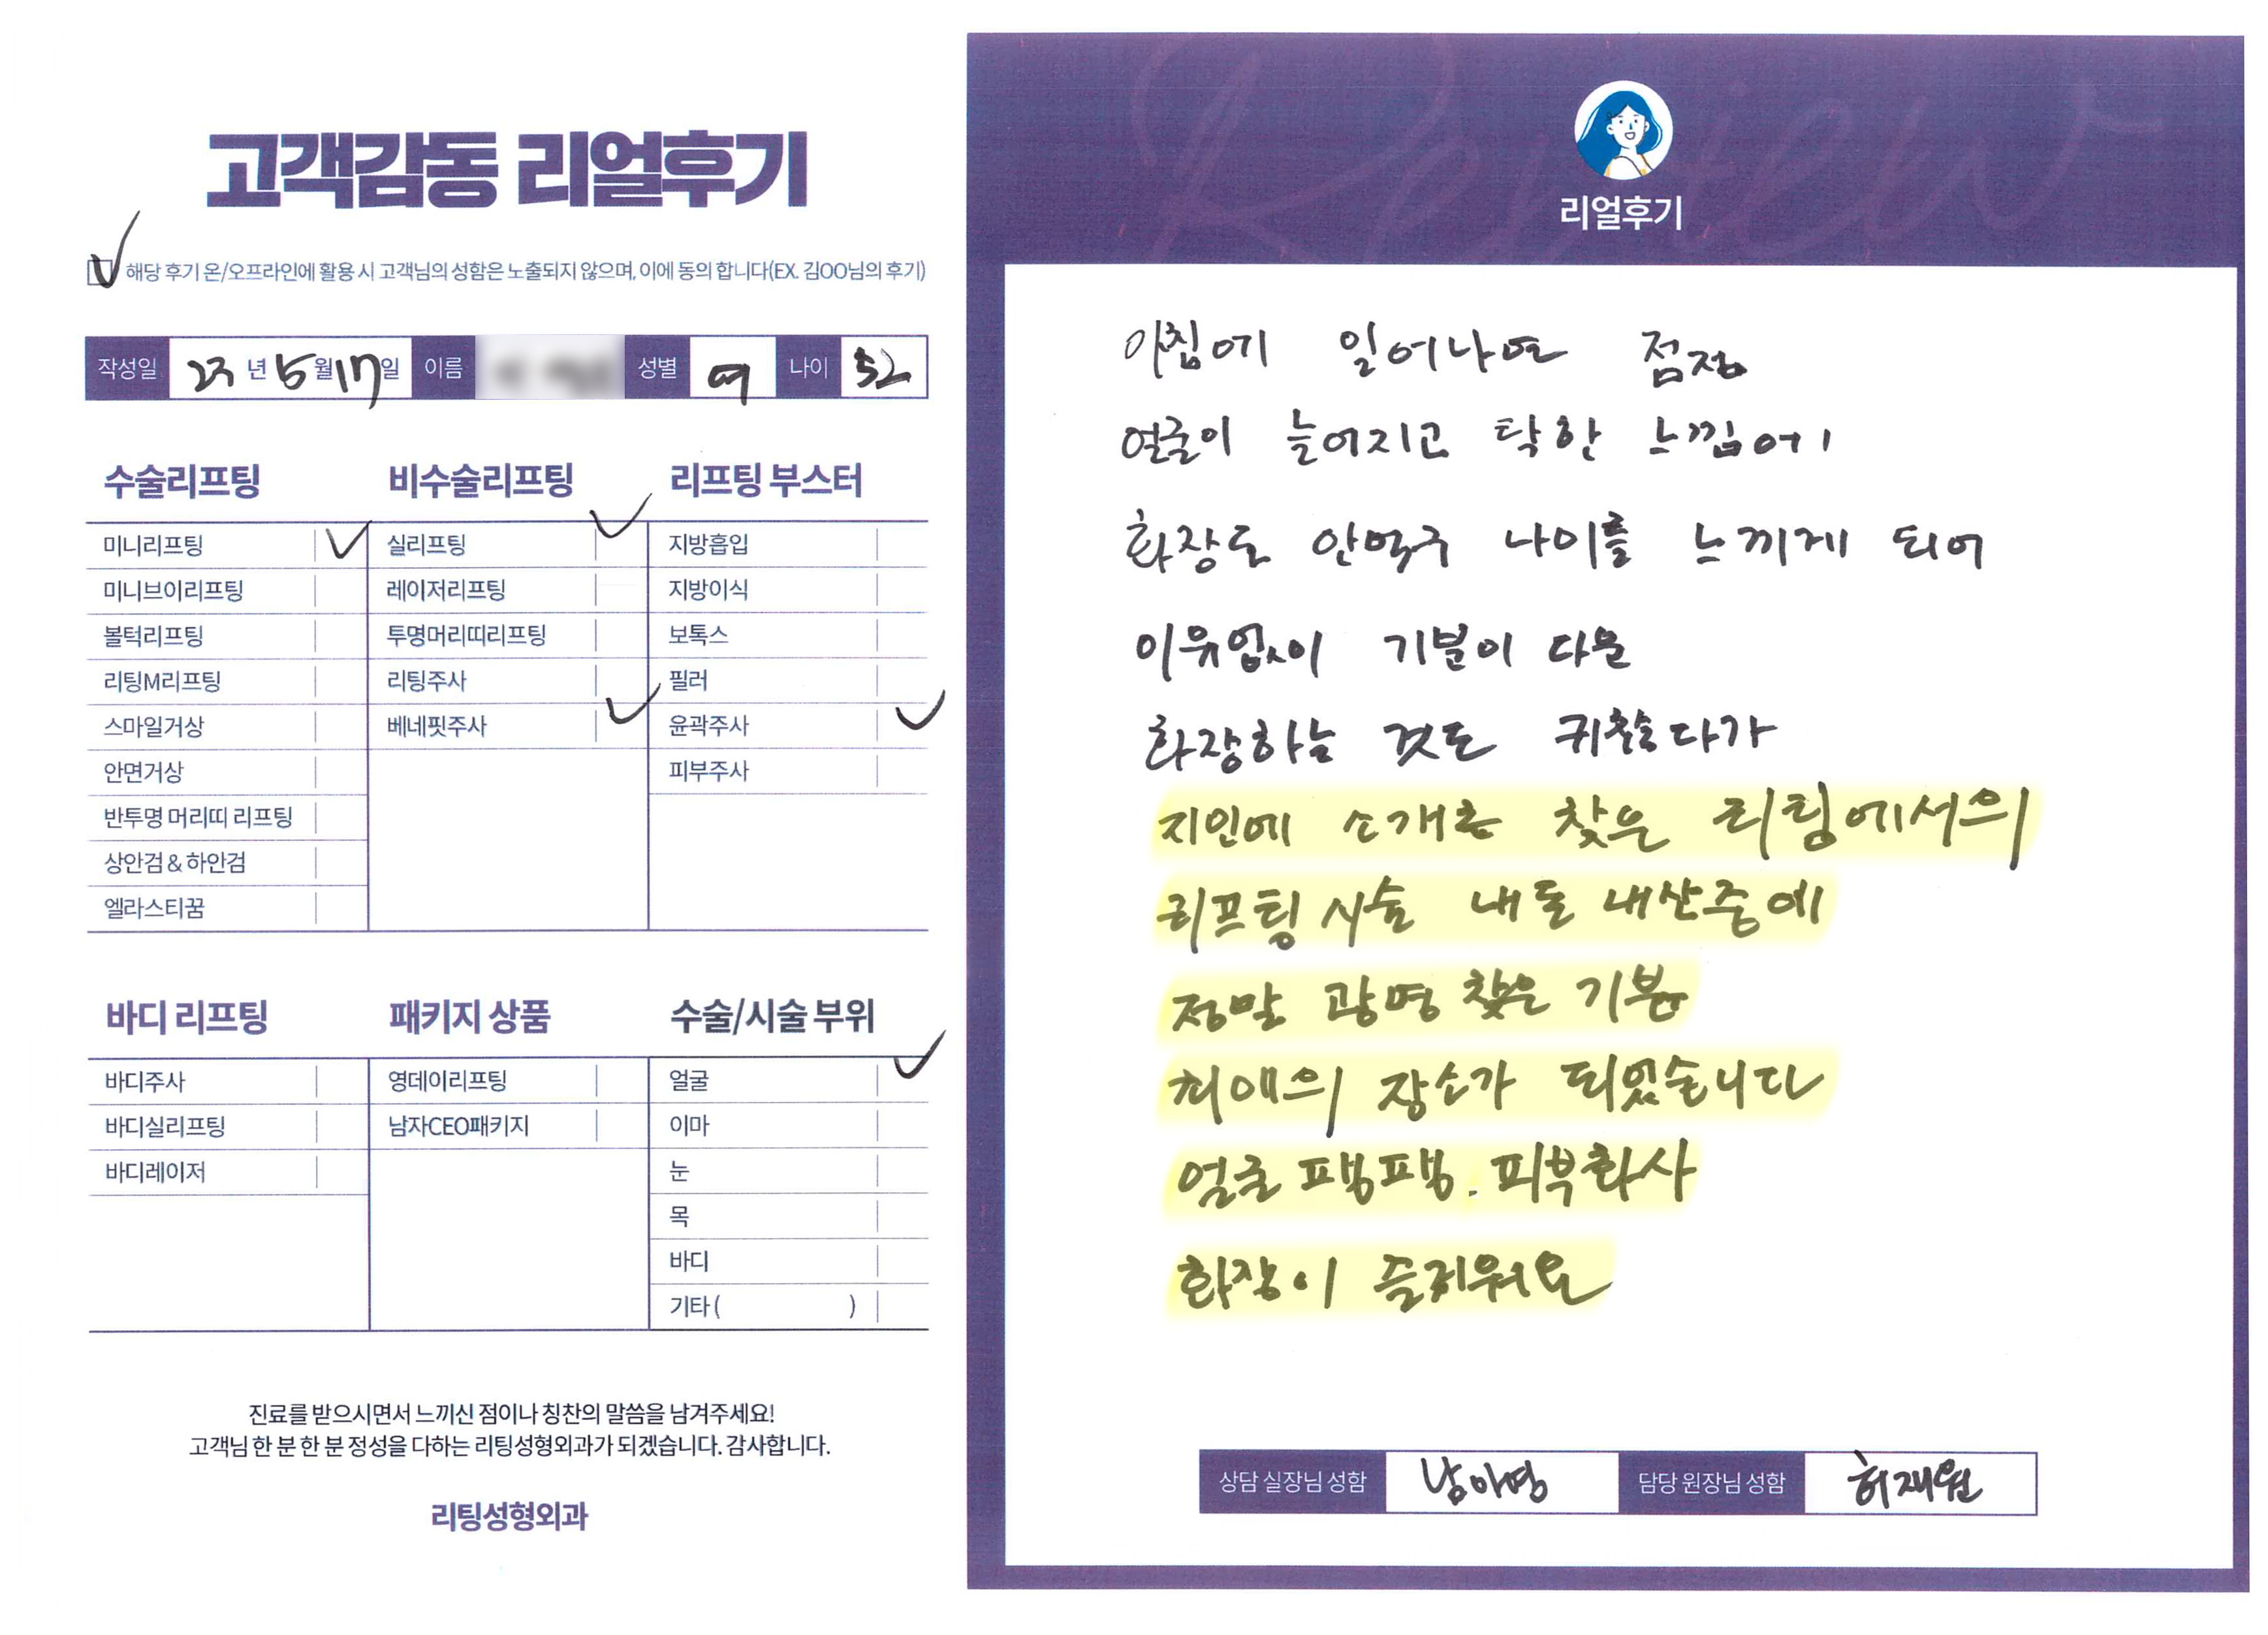 고객감동 리얼후기
해당 후기 온/오프라인에 활용 시 고객님의 성함은 노출되지 않으며, 이에 동의 합니다(EX. 김OO님의 후기)
작성일 23년 5월 17일 이름 성별 여 나이 52
수술리프팅
미니리프팅
미니브이리프팅
볼턱리프팅
리팅M리프팅
스마일거상
안면거상
반투명 머리띠 리프팅
상안검 & 하안검
엘라스티꿈
비수술리프팅
실리프팅
레이저리프팅
투명머리띠리프팅
리팅주사
베네핏주사
리프팅 부스터
지방흡입
지방이식
보톡스
필러
윤곽주사
피부주사
바디 리프팅
바디주사
바디실리프팅
바디레이저
패키지 상품
영데이리프팅
남자CEO패키지
수술/시술 부위
얼굴
이마
눈
목
바디
기타 ( )
진료를 받으시면서 느끼신 점이나 칭찬의 말씀을 남겨주세요!
고객님 한 분 한 분 정성을 다하는 리팅성형외과가 되겠습니다. 감사합니다.
리팅성형외과
Review
리얼후기
아침에 일어나면 점점
얼굴이 늘어지고 탁한 느낌에
화장도 안먹구 나이를 느끼게 되어
이유없이 기분이 다운
화장하는 것도 귀찮다가
지인에 소개로 찾은 리팅에서의
리프팅 시술 내돈 내산중에
정말 광명 찾은 기분
최애의 장소가 되었습니다
얼굴 팽팽. 피부화사
화장이 즐거워요
상담 실장님 성함 남아영 담당 원장님 성함 허재원